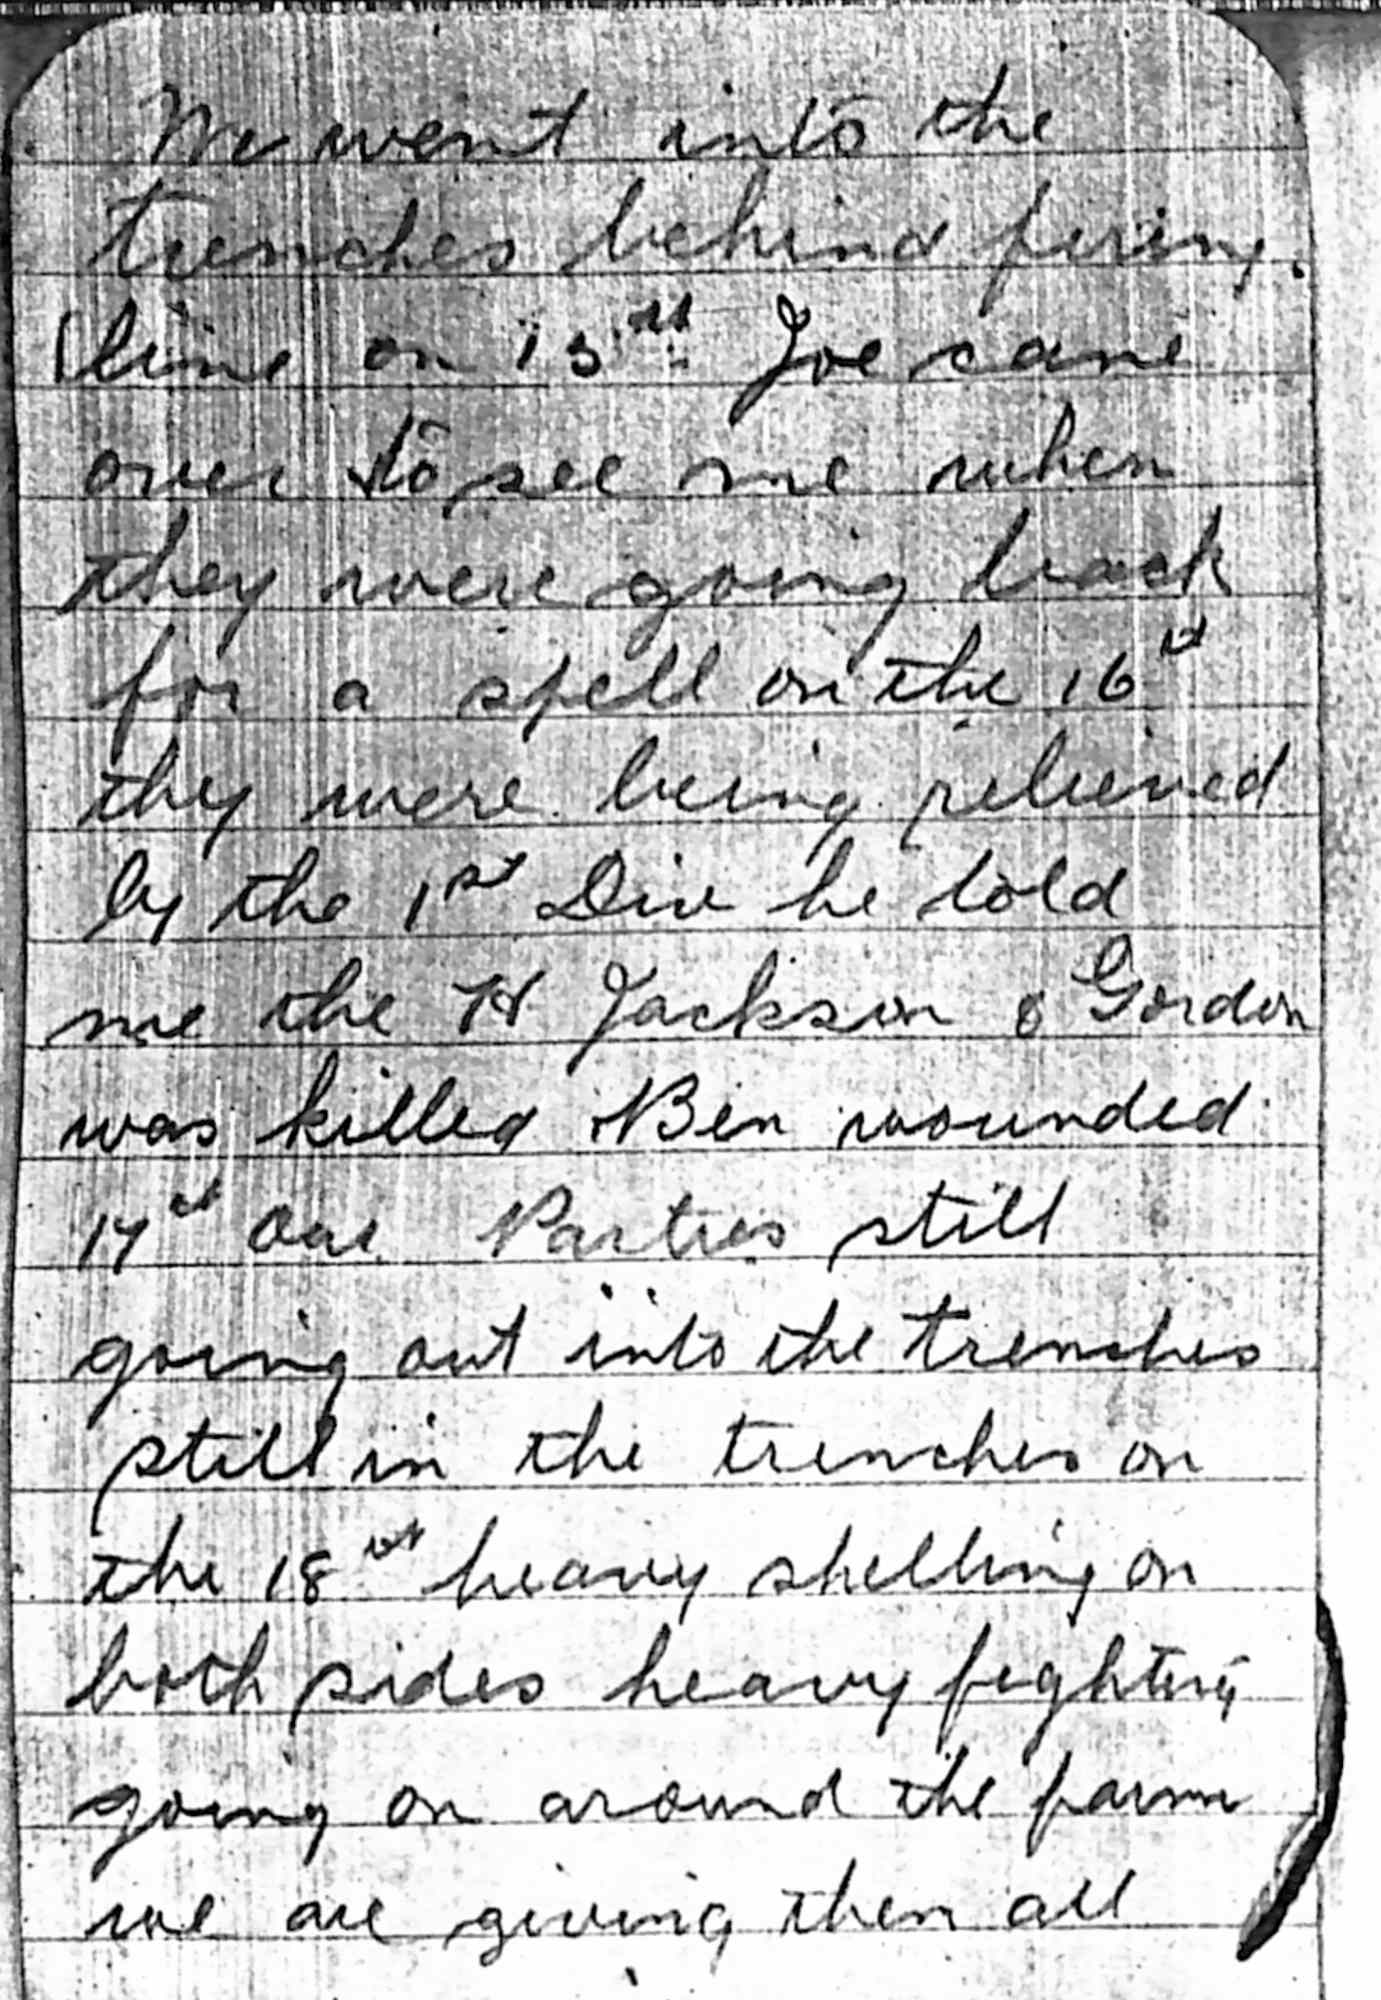 We went into the
trenches behind firing
line on 15th Joe came
over to see me when
they were going back
for a spell on the 16th
they were being relieved
by the 1st Div he told
me the H Jackson & Gordon
was killed Ben wounded
17th our Parties still
going out into the trenches
still in the trenches on
the 18th heavy shelling on
both sides heavy fighting
going on around the farm
we are giving them all